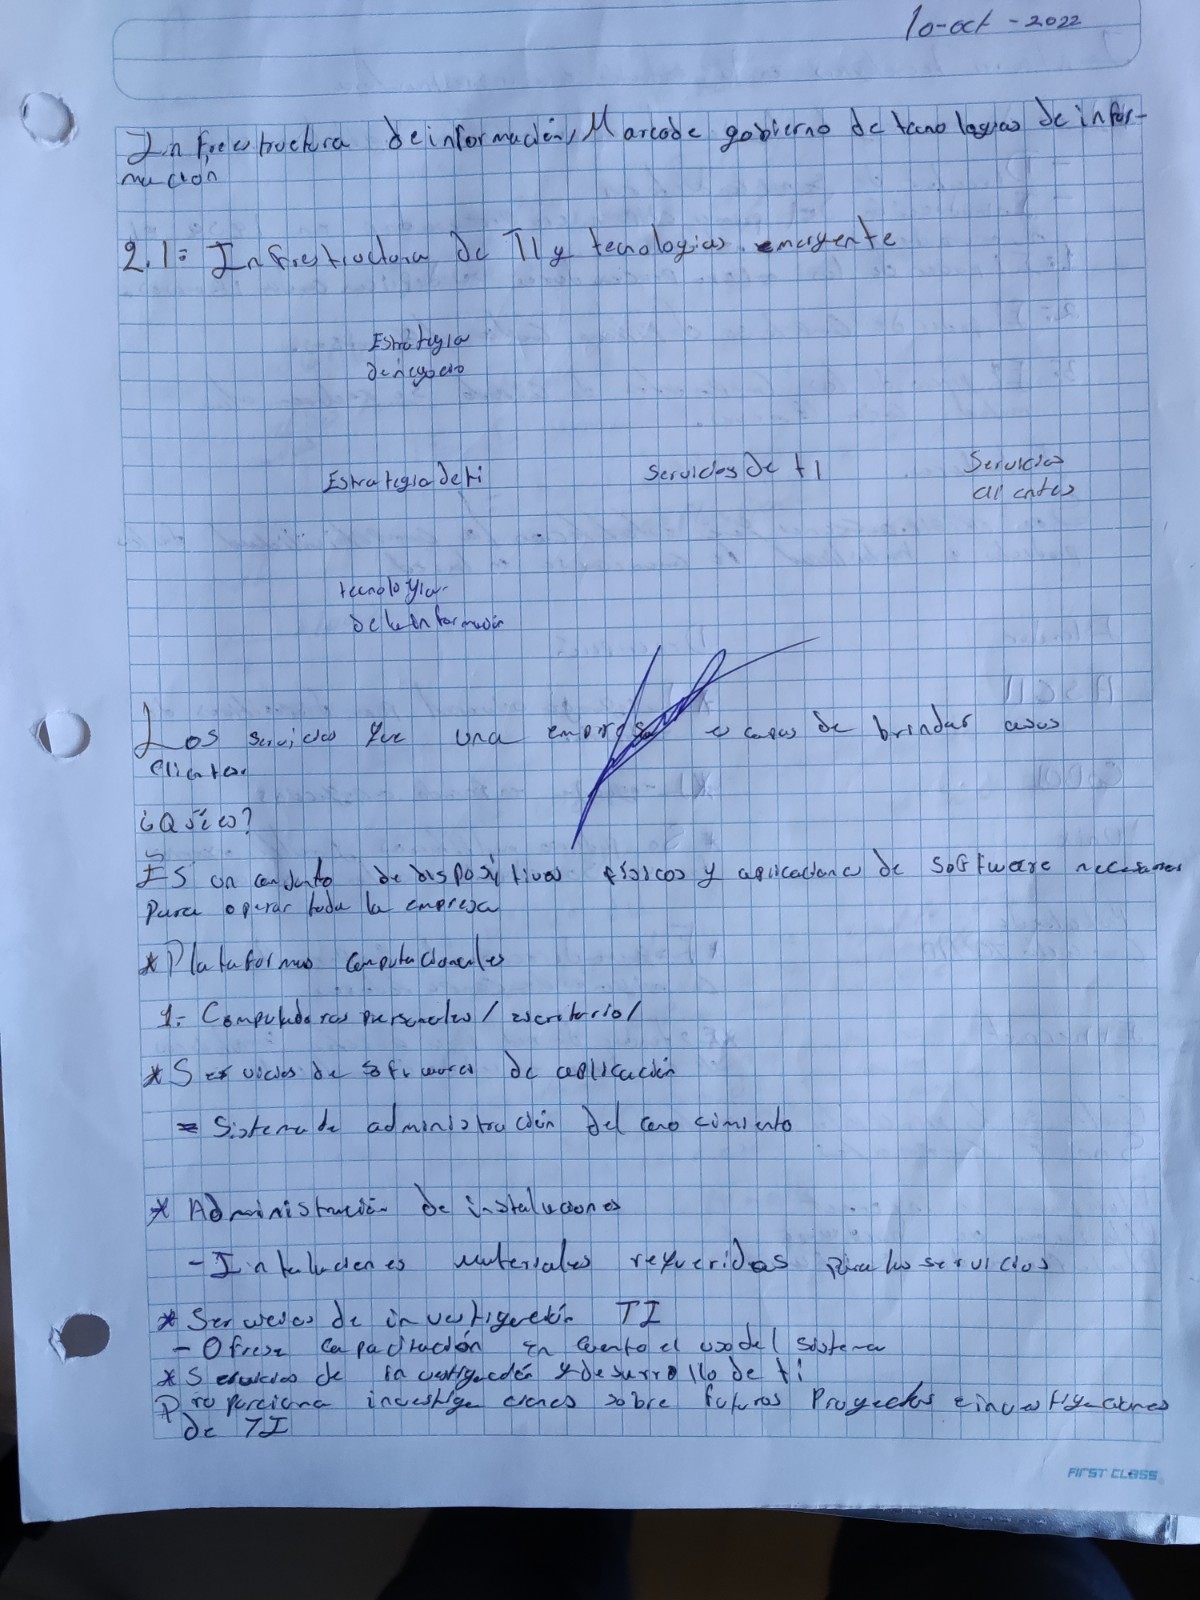 10-oct-2022
Infrestructura de información, Marco de gobierno de tecnologias de infor-
mación
2.1= Infrestructura de TI y tecnologias emergente
Estrategia
de negocio
Estrategia de ti
Servicios de ti
Servicios
clientes
tecnologia
de la informacion
Los servicios que una empresa es capas de brindar asus
clientes.
¿Qúe es?
Es un conjunto de dispositivos fisicos y aplicaciones de software necesarios
para operar toda la empresa
* Plataformas computacionales
1- Computadoras personales / escritorio /
* Servicios de software de aplicación
= Sistema de administración del conocimiento
* Administración de instalaciones
- Intalaciones materiales requeridas para los servicios
* Servicios de investigación TI
- Ofrese capacitación en cuento el uso del sistema
* Servicios de investigación y desarrollo de ti
Proporciona investigaciones sobre futuros Proyectos e investigaciones
de TI
FIRST CLASS